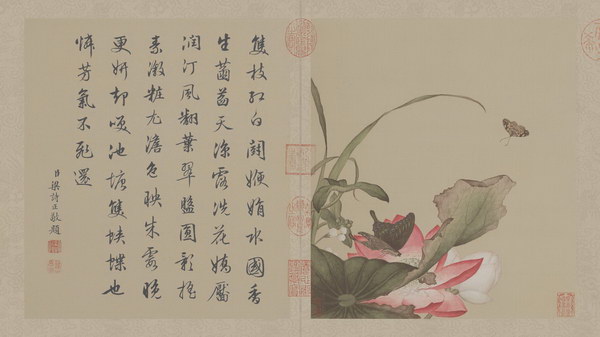 雙枝紅白鬪㛹娟水國香
生菡萏天涼露洗花嬌靨
潤汀風翻葉翠盤圓影搖
素瀲粧尤澹色映朱霞晚
更妍却池塘雙蛺蝶也
憐芳氣不飛還
臣梁詩正敬題